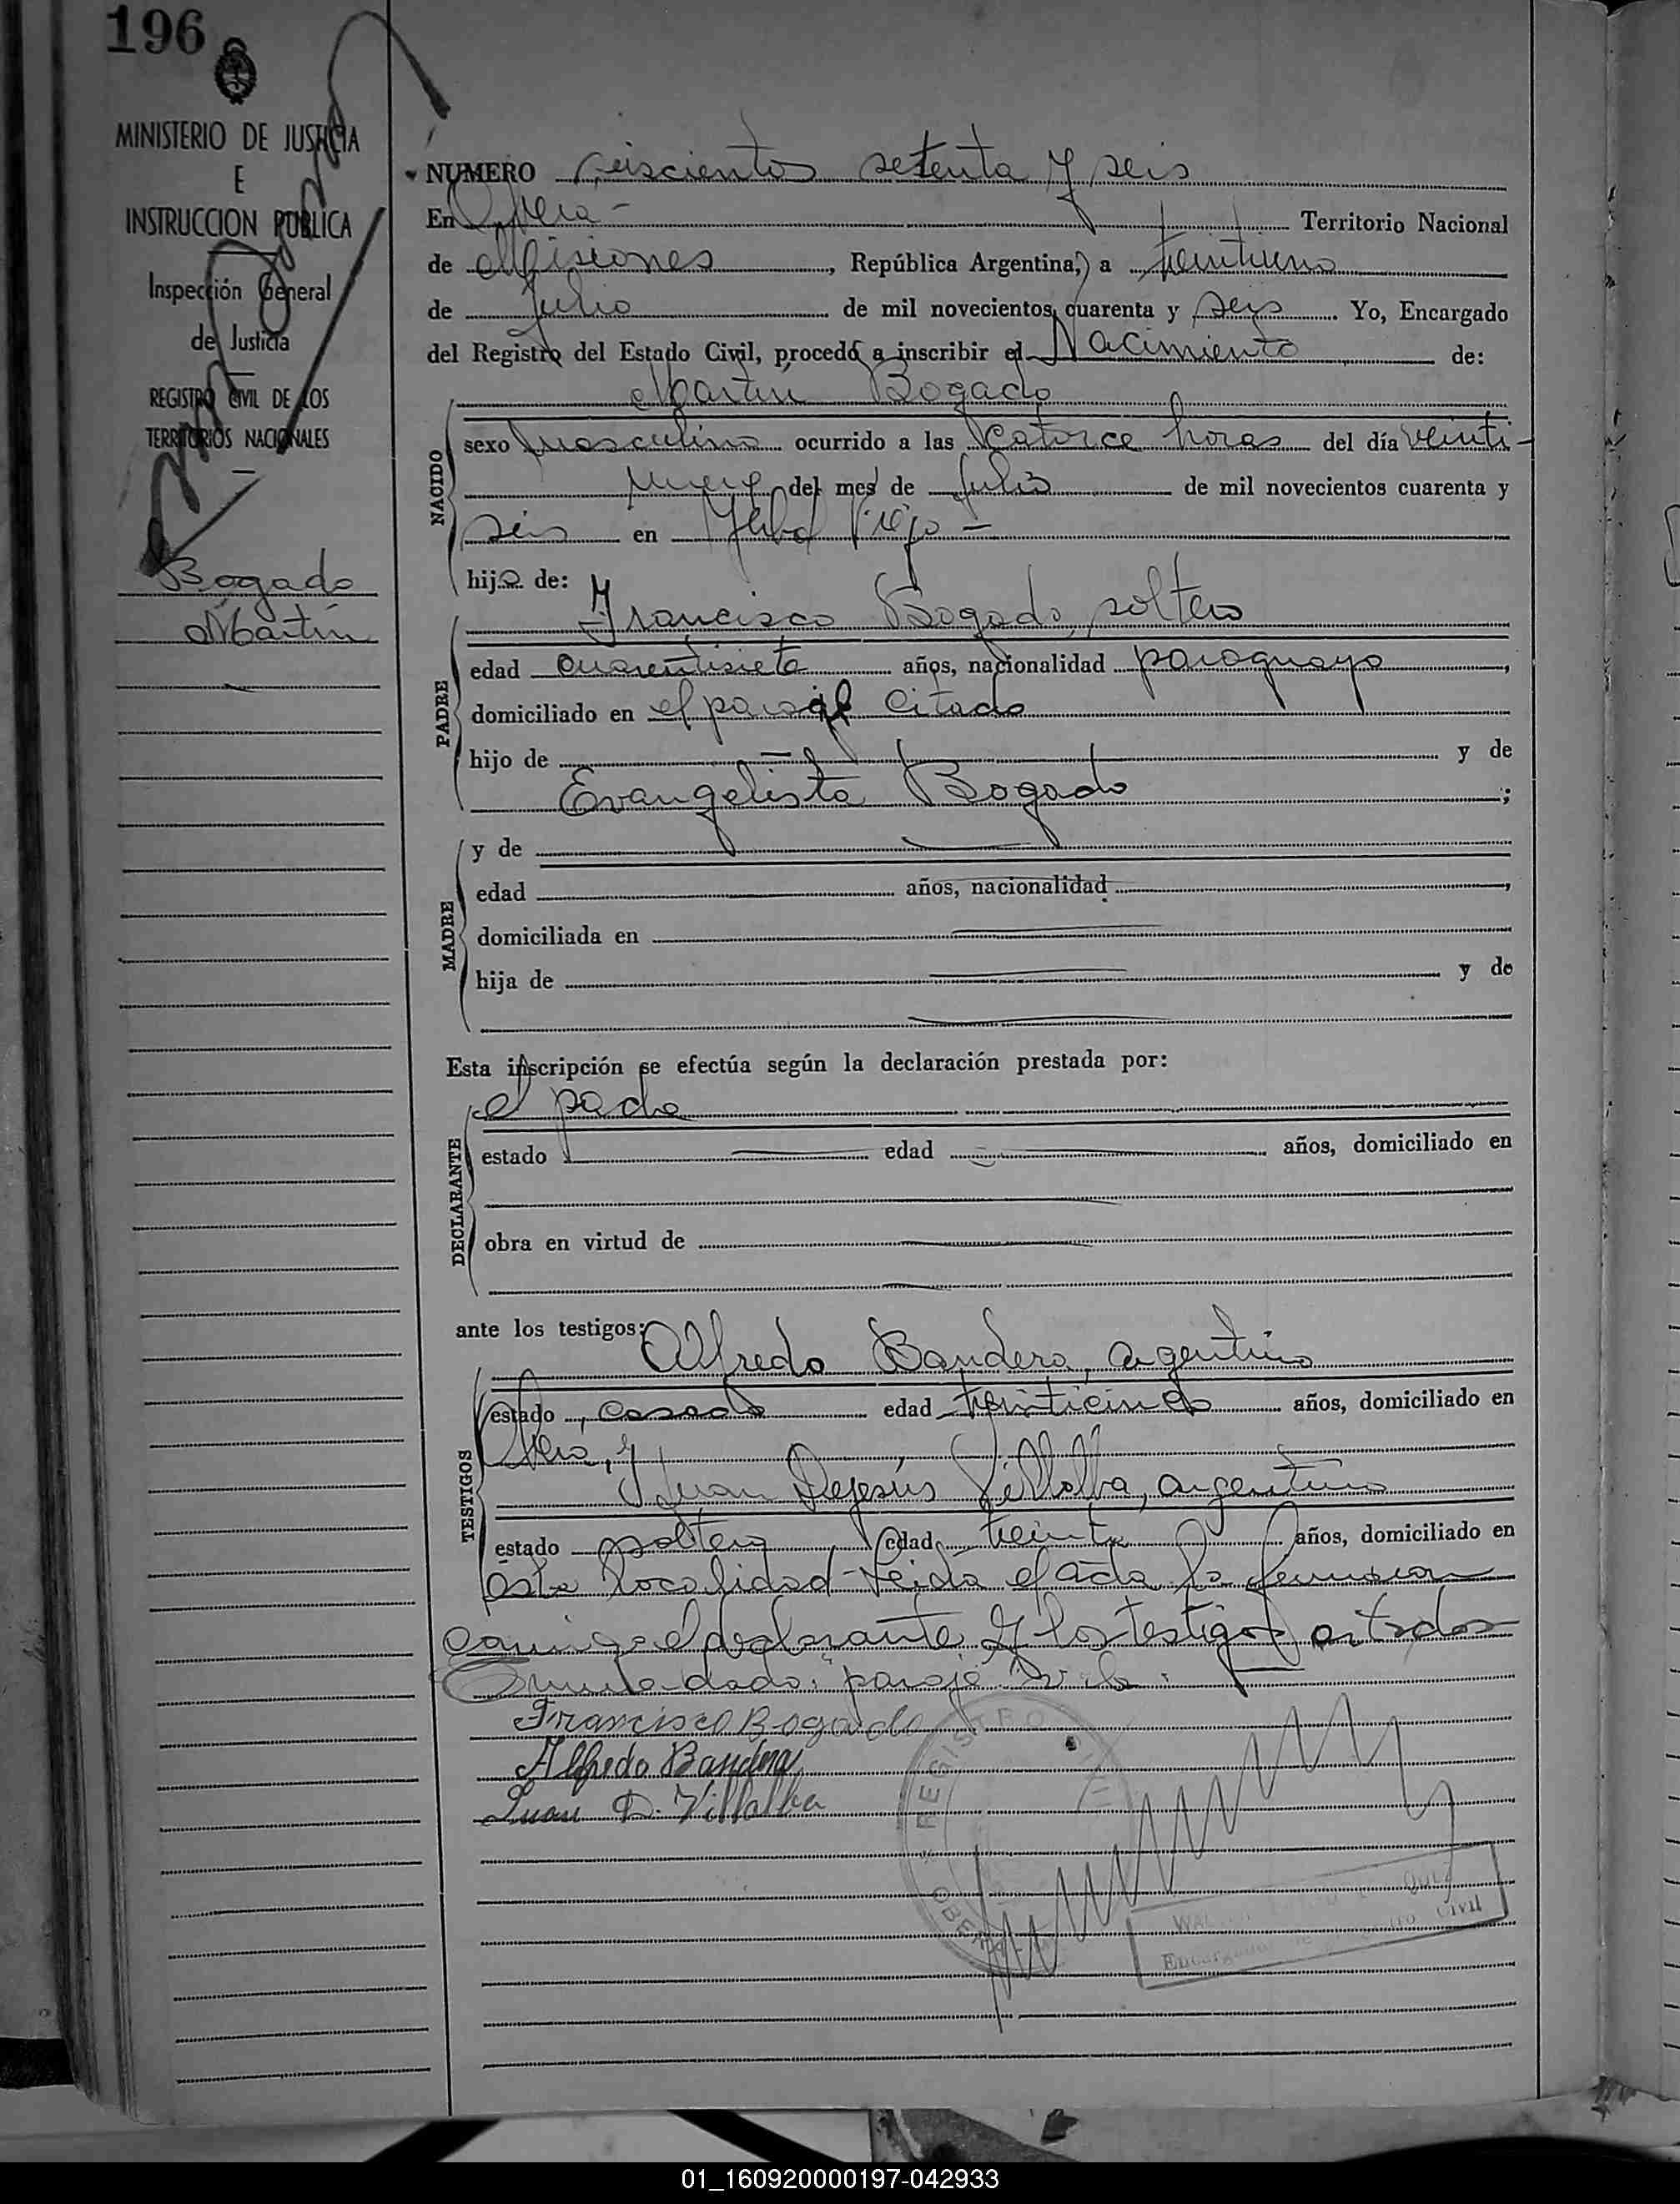 196
MINISTERIO DE JUSTICIA
E
INSTRUCCION PUBLICA
Inspección General
de Justicia
REGISTRO CIVIL DE LOS
TERRITORIOS NACIONALES
Bogado
Martín
NUMERO Seiscientos setenta y seis
En Oberá - Territorio Nacional
de Misiones, República Argentina, a treintiuno
de Julio de mil novecientos cuarenta y seis. Yo, Encargado
del Registro del Estado Civil, procedo a inscribir el Nacimiento de:
Martín Bogado
NACIDO
sexo masculino ocurrido a las catorce horas del día veinti-
nueve del mes de Julio de mil novecientos cuarenta y
seis en Yerbal Viejo -
hijo de:
Francisco Bogado, soltero
PADRE
edad cuarentisiete años, nacionalidad paraguayo,
domiciliado en el paraje citado
hijo de — y de
Evangelista Bogado;
MADRE
y de
edad años, nacionalidad
domiciliada en
hija de y de
Esta inscripción se efectúa según la declaración prestada por:
el padre
DECLARANTE
estado edad años, domiciliado en
obra en virtud de
ante los testigos:
Alfredo Bandera, argentino
TESTIGOS
estado casado edad treinticinco años, domiciliado en
Oberá, y
Juan Dejesús Villalba, argentino
estado soltero edad treinta años, domiciliado en
esta localidad - Leida el acta la firmaron
conmigo el declarante y los testigos citados
Enmendado: paraje Vale.
Francisco Bogado
Alfredo Bandera
Juan D. Villalba
REGISTRO CIVIL
OBERA
Encargado Registro Civil
01_160920000197-042933